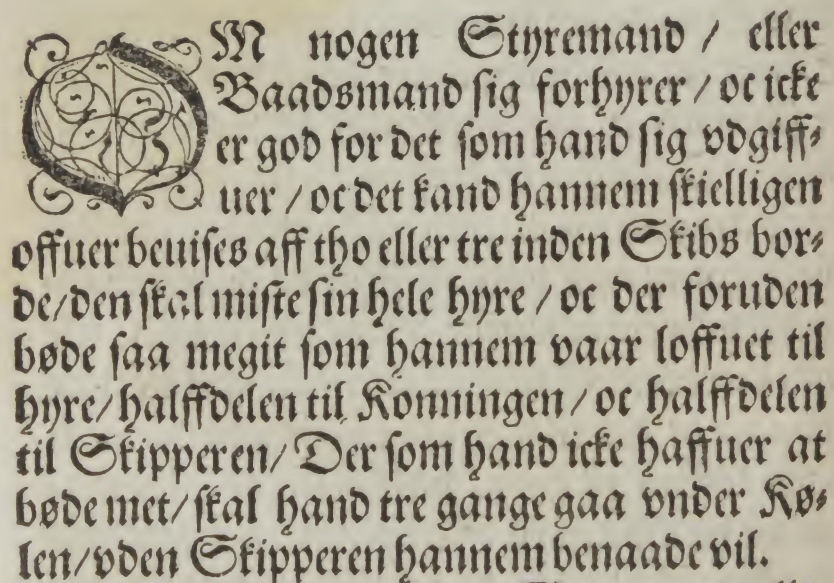 OM nogen Styremand / eller
Baadsmand sig forhyrer / oc icke
er god for det som hand sig vdgiff-
uer / oc det kand hannem skielligen
offuer beuises aff tho eller tre inden Skibs bor-
de/den skal miste sin hele hyre / oc der foruden
bøde saa megit som hannem vaar loffuet til
hyre/halffdelen til Konningen / oc halffdelen
til Skipperen/ Der som hand icke haffuer at
bøde met/skal hand tre gange gaa vnder Kø-
len/vden Skipperen hannem benaade vil.